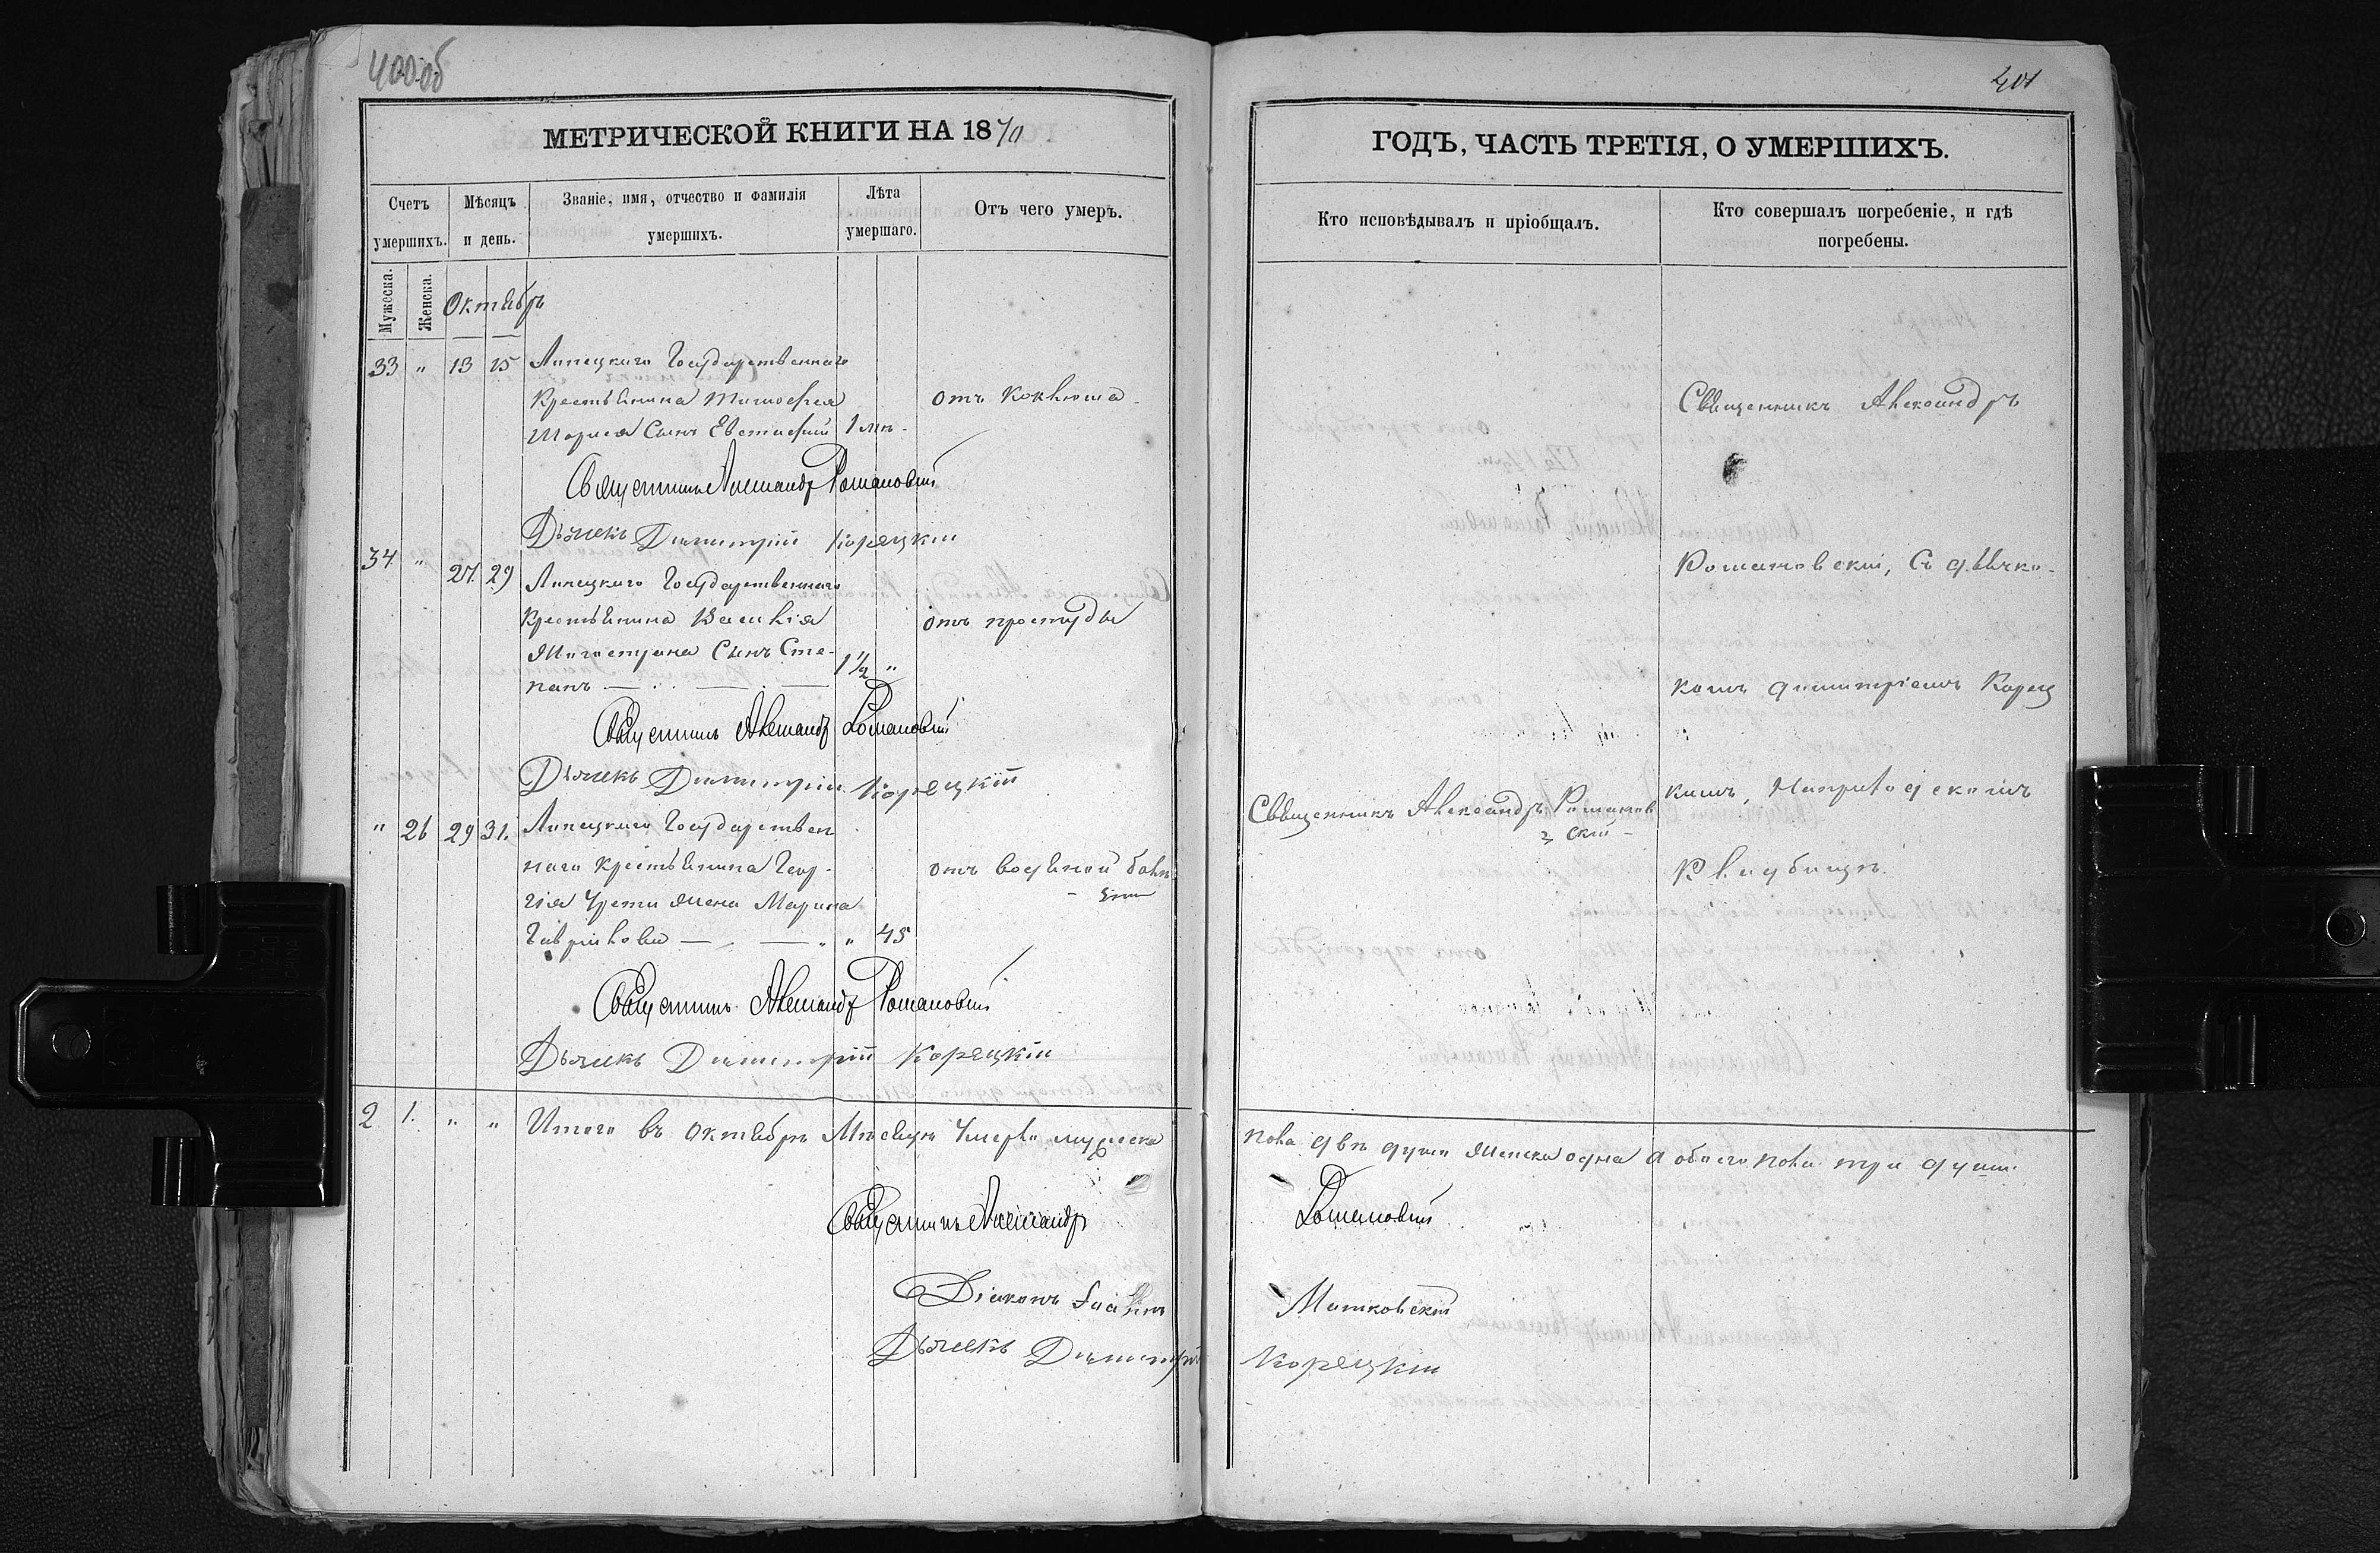 400об
МЕТРИЧЕСКОЙ КНИГИ НА 1870
Счетъ умершихъ.
Мѣсяцъ и день.
Званіе, имя, отчество и фамилія умершихъ.
Лѣта умершаго.
Отъ чего умеръ.
Мужеска.
Женска.
Октябрь
33 " 13 15 Липецкаго Государственнаго
Крестьянина Тимофея отъ коклюша
сынъ Евстафій 1 мѣ.
Священникъ Александръ Романовскій
Дьячекъ Димитрій Корецкій
34 " 27 29 Липецкаго Государственнаго
Крестьянина Василія отъ простуды
сынъ Сте- 1½ "
панъ
Священникъ Александръ Романовскій
Дьячекъ Димитрій Корецкій
" 26 29 31. Липецкаго Государствен
наго Крестьянина Геор- отъ водяной болѣ
гія жена Марина зни
Гаврилова " " 45
Священникъ Александръ Романовскій
Дьячекъ Димитрій Корецкій
2 1. " " Итого въ Октябрѣ Мѣсяцѣ Умерло мужеска
Священникъ Александръ
Діаконъ
Дьячекъ Димитрій
401
ГОДЪ, ЧАСТЬ ТРЕТІЯ, О УМЕРШИХЪ.
Кто исповѣдывалъ и пріобщалъ.
Кто совершалъ погребеніе, и гдѣ погребены.
Священникъ Александръ
Романовскій, съ дьячко-
комъ Димитріемъ Корец
Священникъ Александръ Романов
скій
кимъ, На приходскомъ
Кладбищѣ.
пола двѣ души женска одна а обоего пола три души.
Романовскій
Матковскій
Корецкій